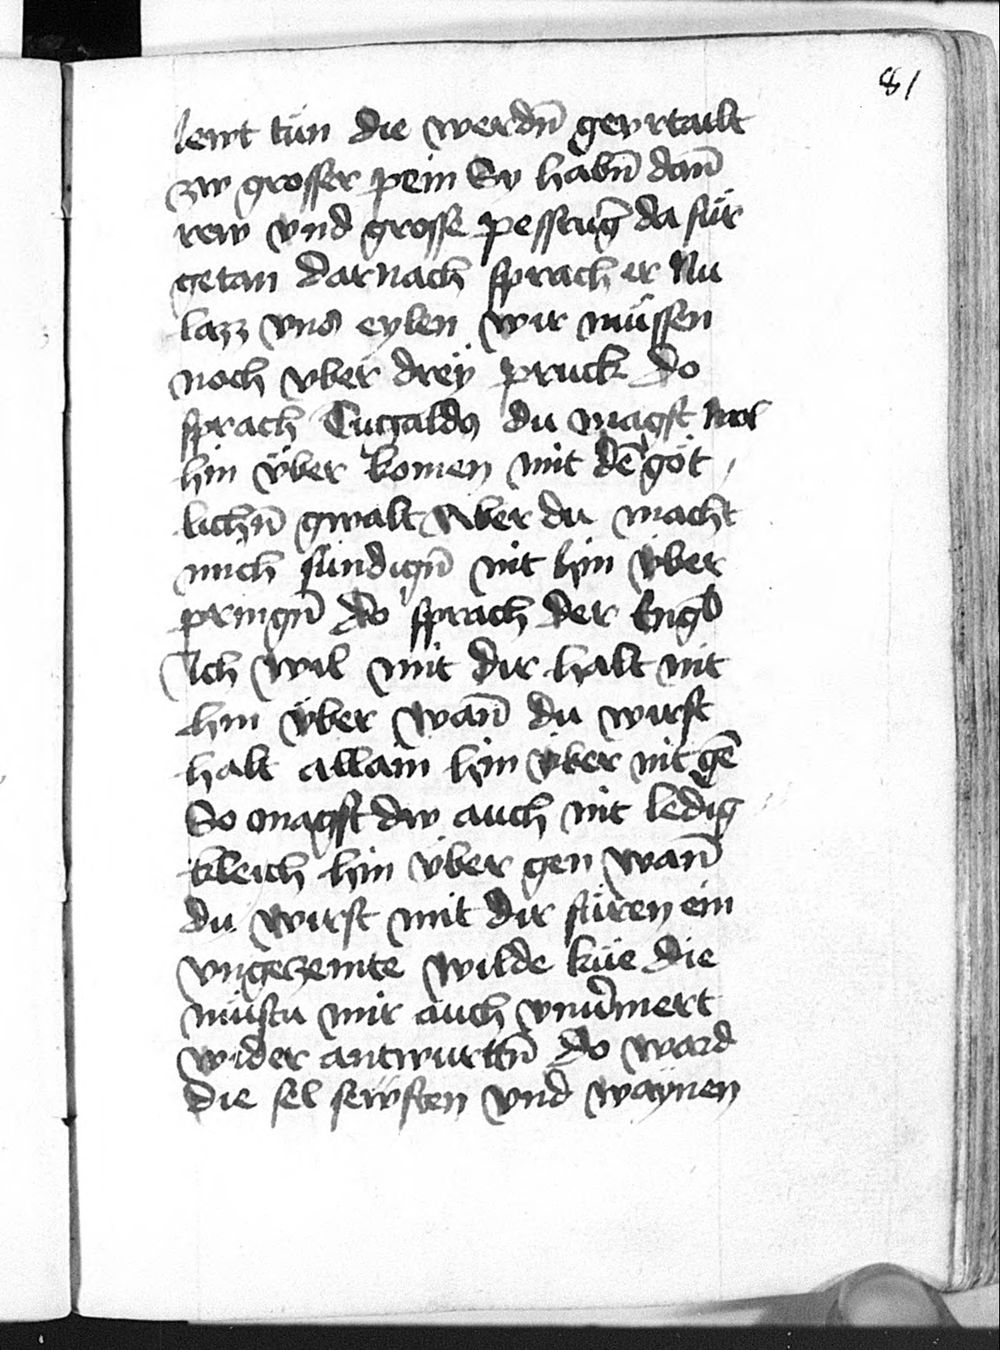 81
lewt tün die werdn̄ geurtailt
zw grosser pein Sy habn̄ dan̄
rew vnd grosse pessrūg da für
getan dar nach sprach er Nu
lazz vns eylen wir müssen
noch vber dreÿ pruck Do
sprach Tugaldꝯ du magst wol
hin über komen mit dē göt
lichn̄ gwalt Aber du macht
mich sündign̄ nit hin über
pringn̄ do sprach der Engl
Ich wil mit dir halt nit
hin über wan̄ du wirst
halt allain hin über mit gē
So magst dw auch nit ledig
kleich hin über gen wan̄
du wirst mit dir füren ein
vngezemte wilde küe die
müstu mir auch vnu̔mert
wider antwurttn̄ Do ward
die sel sewften vnd waÿnen